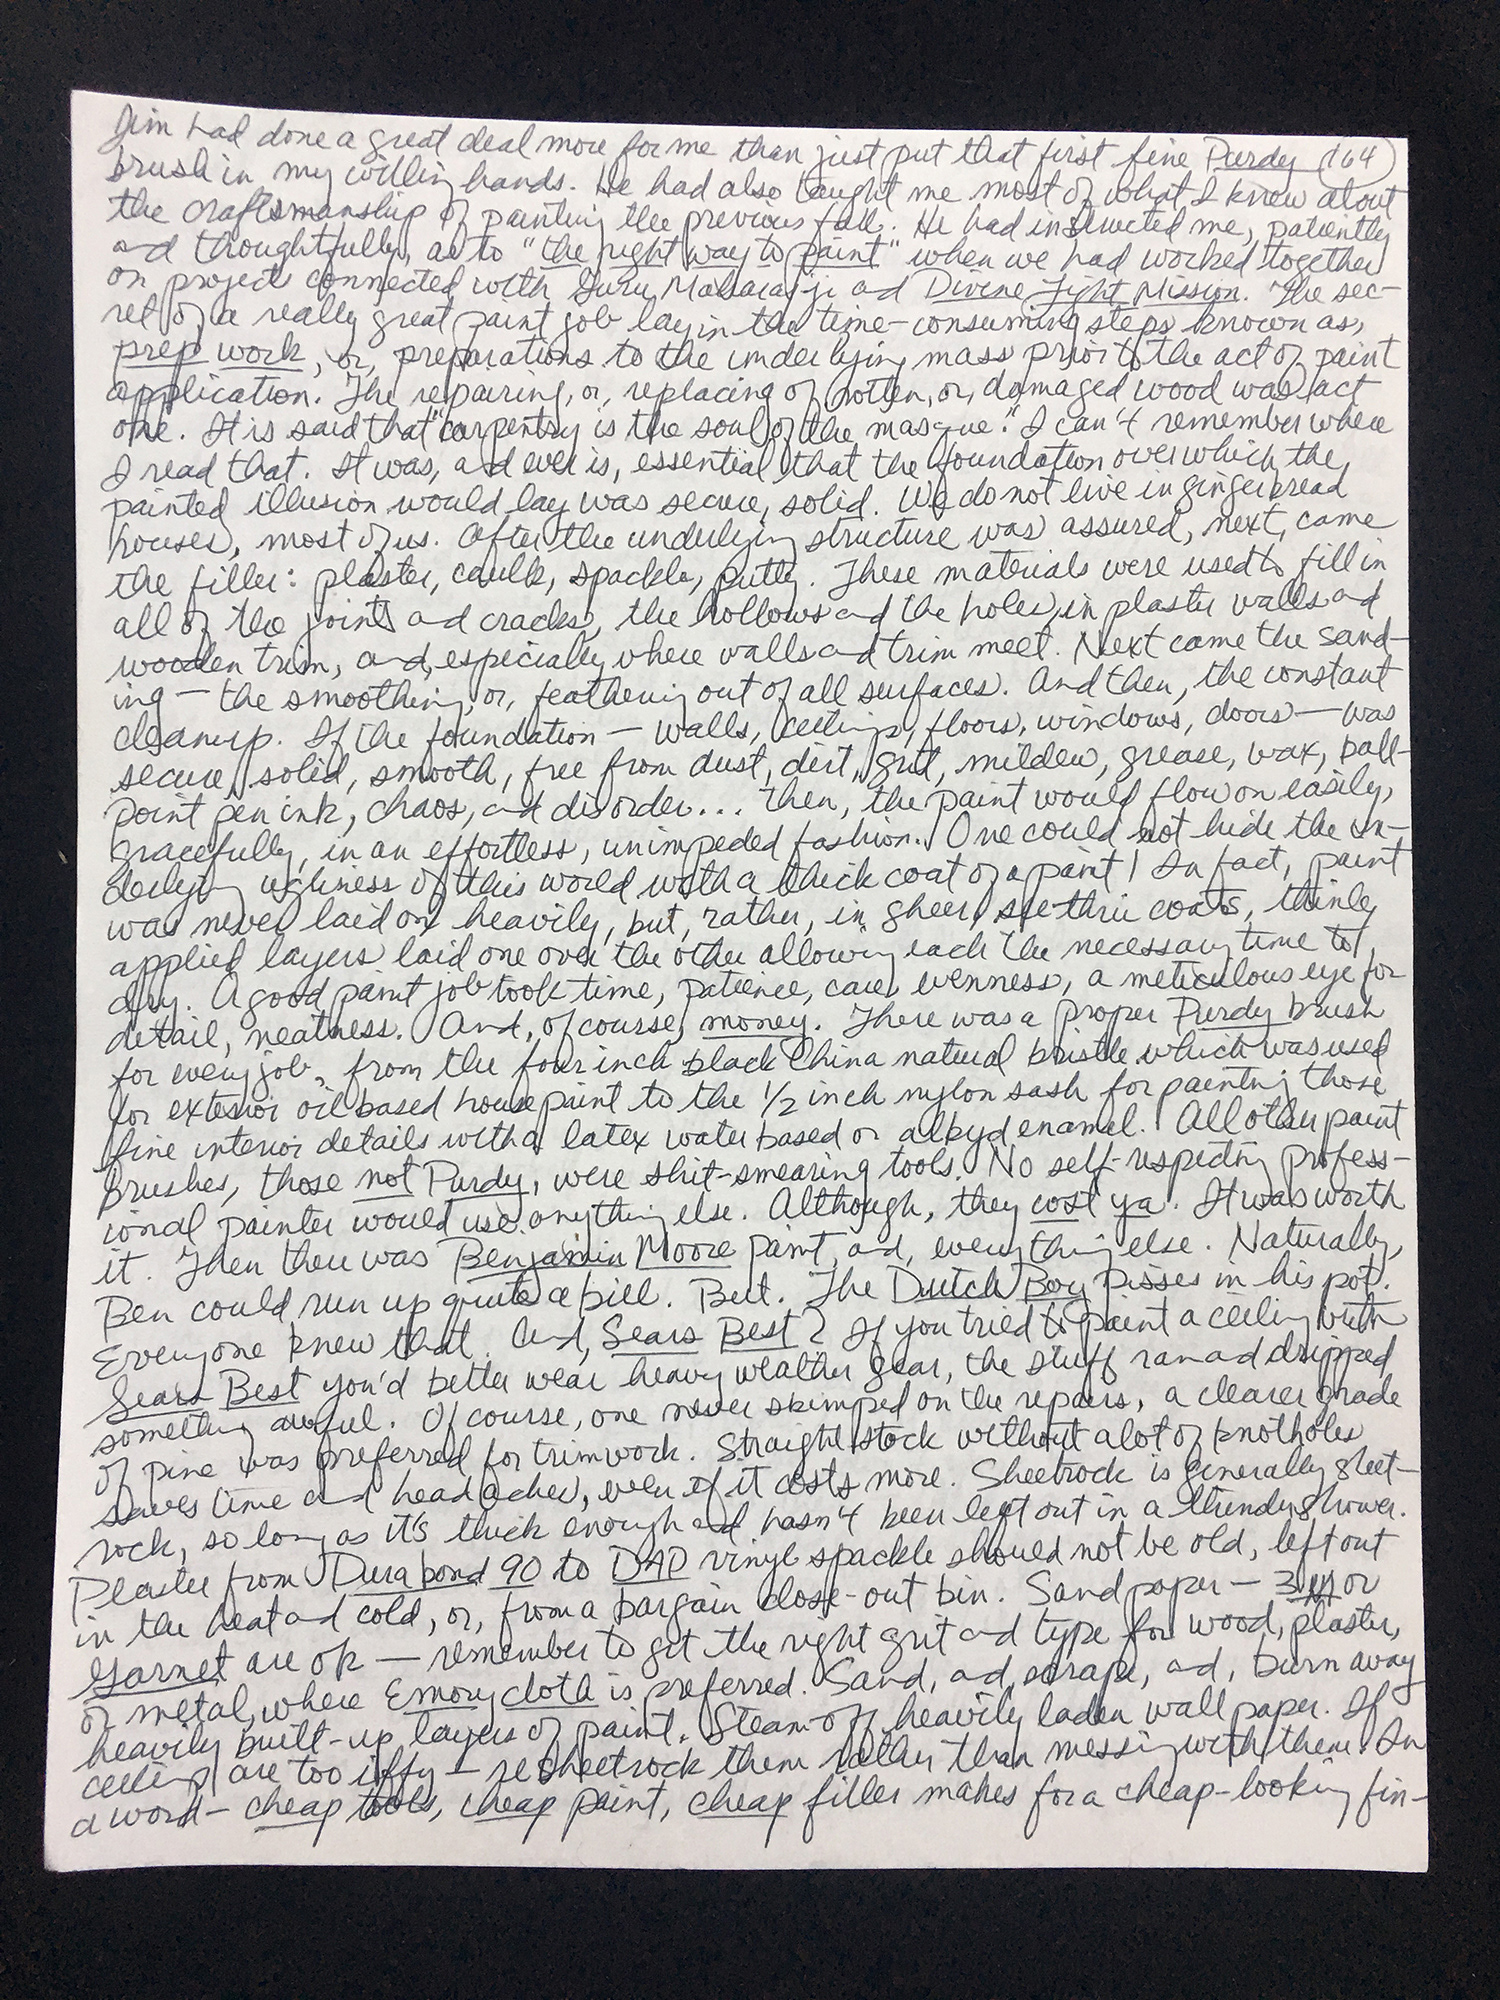 Jim had done a great deal more for me than just put that first fine Purdy (164)
brush in my willing hands. He had also taught me most of what I know about
the craftsmanship of painting the previous fall. He had instructed me, patiently
and thoughtfully, as to "the right way to paint" when we had worked together
on projects connected with Guru Maharaj ji and Divine Light Mission. The sec-
ret of a really great paint job lay in the time-consuming steps known as,
prep work, or, preparations to the underlying mass prior to the act of paint
application. The repairing, or, replacing of rotten, or, damaged wood was act
one. It is said that "carpentry is the soul of the masque." I can't remember where
I read that. It was, and ever is, essential that the foundation over which the
painted illusion would lay was secure, solid. We do not live in gingerbread
houses, most of us. After the underlying structure was assured, next, came
the filler: plaster, caulk, spackle, putty. These materials were used to fill in
all of the joints and cracks, the hollows and the holes, in plaster walls and
wooden trim, and, especially where walls and trim meet. Next came the sand-
ing — the smoothing, or, feathering out of all surfaces. And then, the constant
cleanup. If the foundation — walls, ceilings, floors, windows, doors — was
secure, solid, smooth, free from dust, dirt, grit, mildew, grease, wax, ball-
point pen ink, chaos, and disorder... Then, the paint would flow on easily,
gracefully, in an effortless, unimpeded fashion. One could not hide the un-
derlying ugliness of this world with a thick coat of a paint! In fact, paint
was never laid on heavily, but, rather, in sheer, see-thru coats, thinly
applied layers laid one over the other allowing each the necessary time to
dry. A good paint job took time, patience, care, evenness, a meticulous eye for
detail, neatness. And, of course, money. There was a proper Purdy brush
for every job, from the four inch black China natural bristle which was used
for exterior oil based house paint to the 1/2 inch nylon sash for painting those
fine interior details with a latex water based or alkyd enamel. All other paint
brushes, those not Purdy, were shit-smearing tools. No self-respecting profess-
ional painter would use anything else. Although, they cost ya. It was worth
it. Then there was Benjamin Moore paint, and, everything else. Naturally,
Ben could run up quite a bill. But. The Dutch Boy pisses in his pot.
Everyone knew that. And, Sears Best? If you tried to paint a ceiling with
Sears Best you'd better wear heavy weather gear, the stuff ran and dripped
something awful. Of course, one never skimped on the repairs, a clearer grade
of pine was preferred for trimwork. Straight stock without a lot of knotholes
saves time and headaches, even if it costs more. Sheetrock is generally sheet-
rock, so long as it's thick enough and hasn't been left out in a thundershower.
Plaster from Durabond 90 to DAP vinyl spackle should not be old, left out
in the heat and cold, or, from a bargain close-out bin. Sandpaper — 3M or
Garnet are ok — remember to get the right grit and type for wood, plaster,
or metal, where Emory cloth is preferred. Sand, and, scrape, and, burn away
heavily built-up layers of paint. Steam off heavily laden wall paper. If
ceilings are too iffy — resheetrock them rather than messing with them. In
a word — cheap tools, cheap paint, cheap filler makes for a cheap-looking fin-